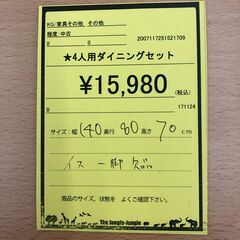 KG/家具その他 その他
程度:中古 2007117251521709
★4人用ダイニングセット
¥15,980
(税込)
171124
サイズ:幅140奥行80高さ70cm
イス 一脚 欠品
商品のサイズ、状態を よくご確認下さい。
The Jungle-Jungle